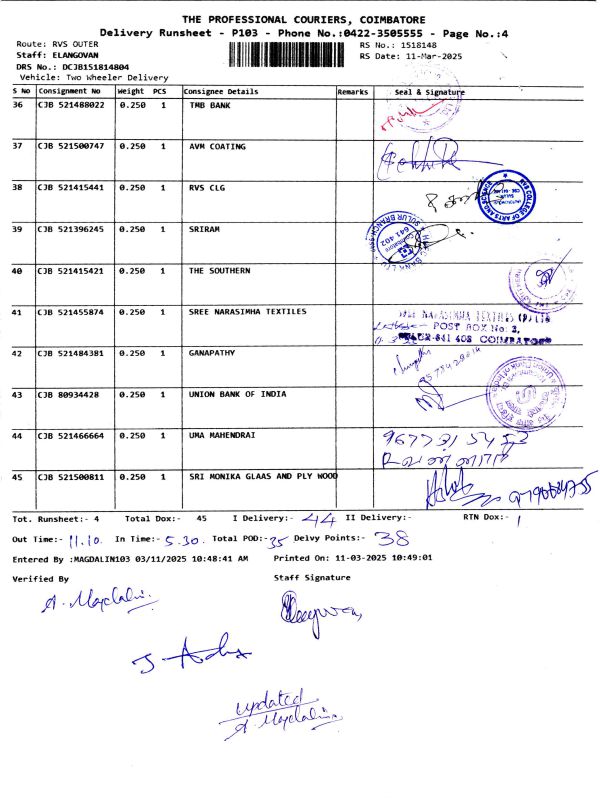 THE PROFESSIONAL COURIERS, COIMBATORE
Delivery Runsheet - P103 - Phone No.:0422-3505555 - Page No.:4
Route: RVS OUTER RS No.: 1518148
Staff: ELANGOVAN RS Date: 11-Mar-2025
DRS No.: DCJB151814804
Vehicle: Two Wheeler Delivery
S No Consignment No Weight PCS Consignee Details Remarks Seal & Signature
36 CJB 521488022 0.250 1 TMB BANK
37 CJB 521500747 0.250 1 AVM COATING
38 CJB 521415441 0.250 1 RVS CLG
RVS COLLEGE OF ARTS AND SCIENCE
39 CJB 521396245 0.250 1 SRIRAM
SULUR BRANCH
641 402
40 CJB 521415421 0.250 1 THE SOUTHERN
41 CJB 521455874 0.250 1 SREE NARASIMHA TEXTILES
SREE NARASIMHA TEXTILES (P) LTD
POST BOX No: 2,
SULUR-641 402 COIMBATORE
42 CJB 521484381 0.250 1 GANAPATHY
43 CJB 80934428 0.250 1 UNION BANK OF INDIA
44 CJB 521466664 0.250 1 UMA MAHENDRAI
45 CJB 521500811 0.250 1 SRI MONIKA GLAAS AND PLY WOOD
Tot. Runsheet:- 4 Total Dox:- 45 I Delivery:- 44 II Delivery:- RTN Dox:- 1
Out Time:- 11.10. In Time:- 5.30. Total POD:- 35 Delvy Points:- 38
Entered By :MAGDALIN103 03/11/2025 10:48:41 AM Printed On: 11-03-2025 10:49:01
Verified By Staff Signature
A. Magdalin.
updated
A. Magdalin.